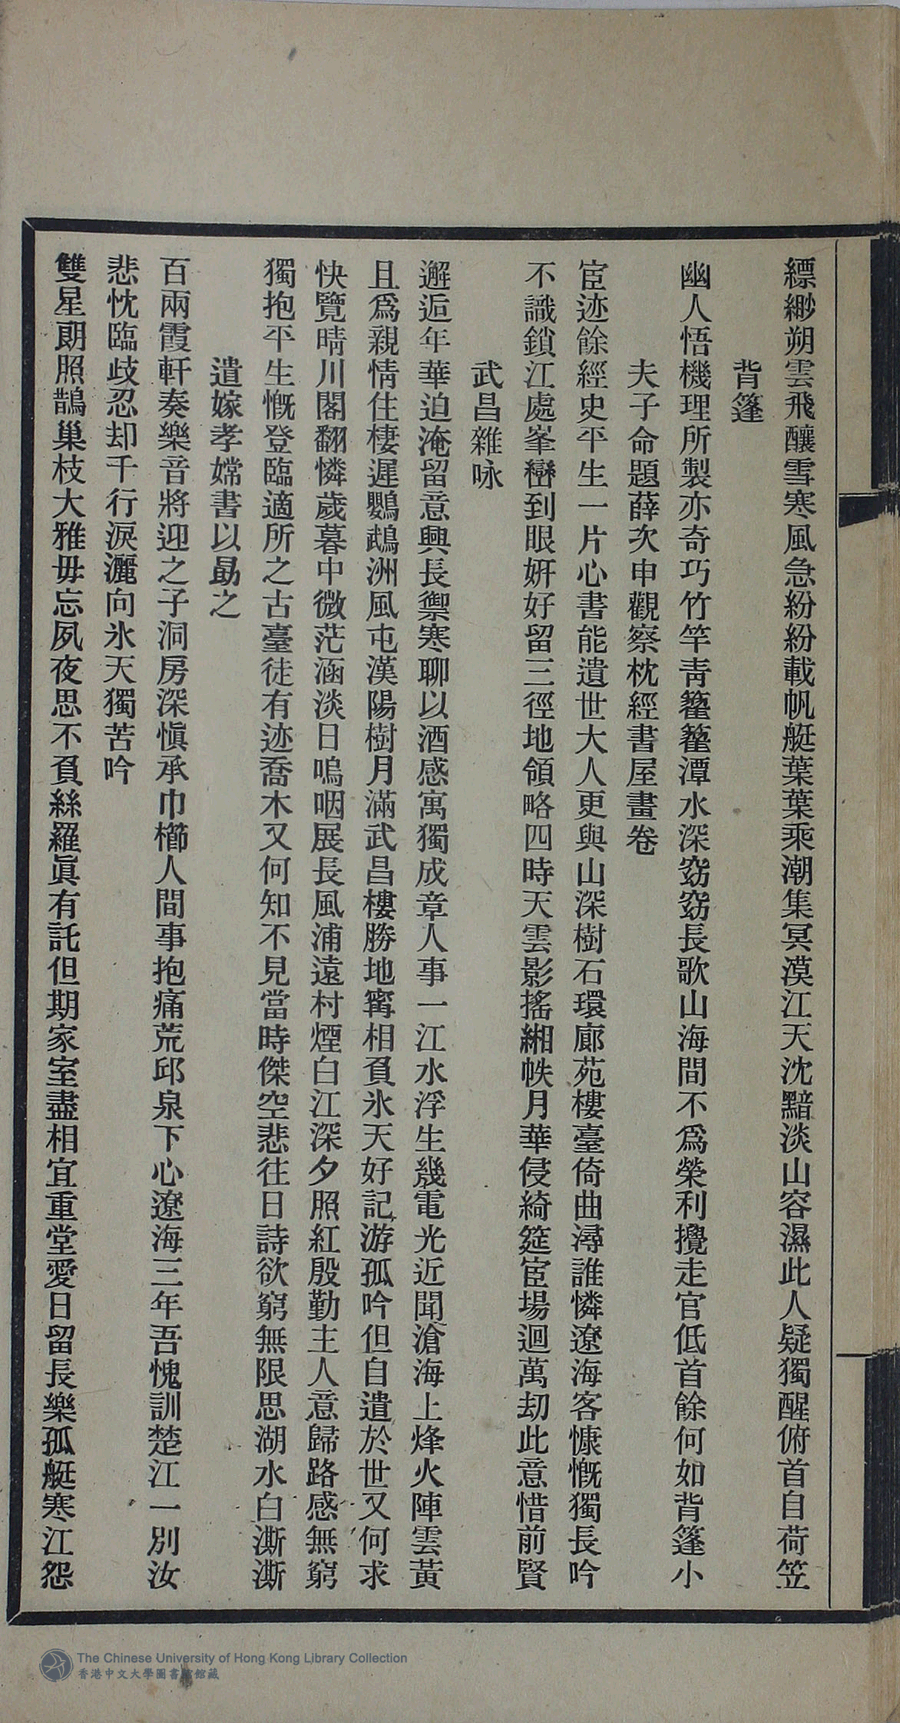 縹緲朔雲飛釀雪寒風急紛紛載帆艇葉葉乘潮集冥漠江天沈黯淡山容濕此人疑獨醒俯首自荷笠
背篷
幽人悟機理所製亦奇巧竹竿靑籊籊潭水深窈窈長歌山海間不爲榮利攪走官低首餘何如背篷小
夫子命題薛次申觀察枕經書屋畫卷
宦迹餘經史平生一片心書能遺世大人更與山深樹石環廊苑樓臺倚曲潯誰憐遼海客慷慨獨長吟
不識鎖江處峯巒到眼姸好留三徑地領略四時天雲影搖緗帙月華侵綺筵宦場迴萬劫此意惜前賢
武昌雜咏
邂逅年華迫淹留意興長禦寒聊以酒感寓獨成章人事一江水浮生幾電光近聞滄海上烽火陣雲黃
且爲親情住棲遲鸚鵡洲風屯漢陽樹月滿武昌樓勝地寗相負氷天好記游孤吟但自遺於世又何求
快覽晴川閣翻憐歲暮中微茫涵淡日嗚咽展長風浦遠村煙白江深夕照紅殷勤主人意歸路感無窮
獨抱平生慨登臨適所之古臺徒有迹喬木又何知不見當時傑空悲往日詩欲窮無限思湖水白澌澌
遺嫁孝嫦書以勗之
百兩霞軒奏樂音將迎之子洞房深愼承巾櫛人間事抱痛荒邱泉下心遼海三年吾愧訓楚江一別汝
悲忱臨歧忍却千行淚灑向氷天獨苦吟
雙星朗照鵲巢枝大雅毋忘夙夜思不負絲羅眞有託但期家室盡相宜重堂愛日留長樂孤艇寒江怨
The Chinese University of Hong Kong Library Collection
香港中文大學圖書館館藏